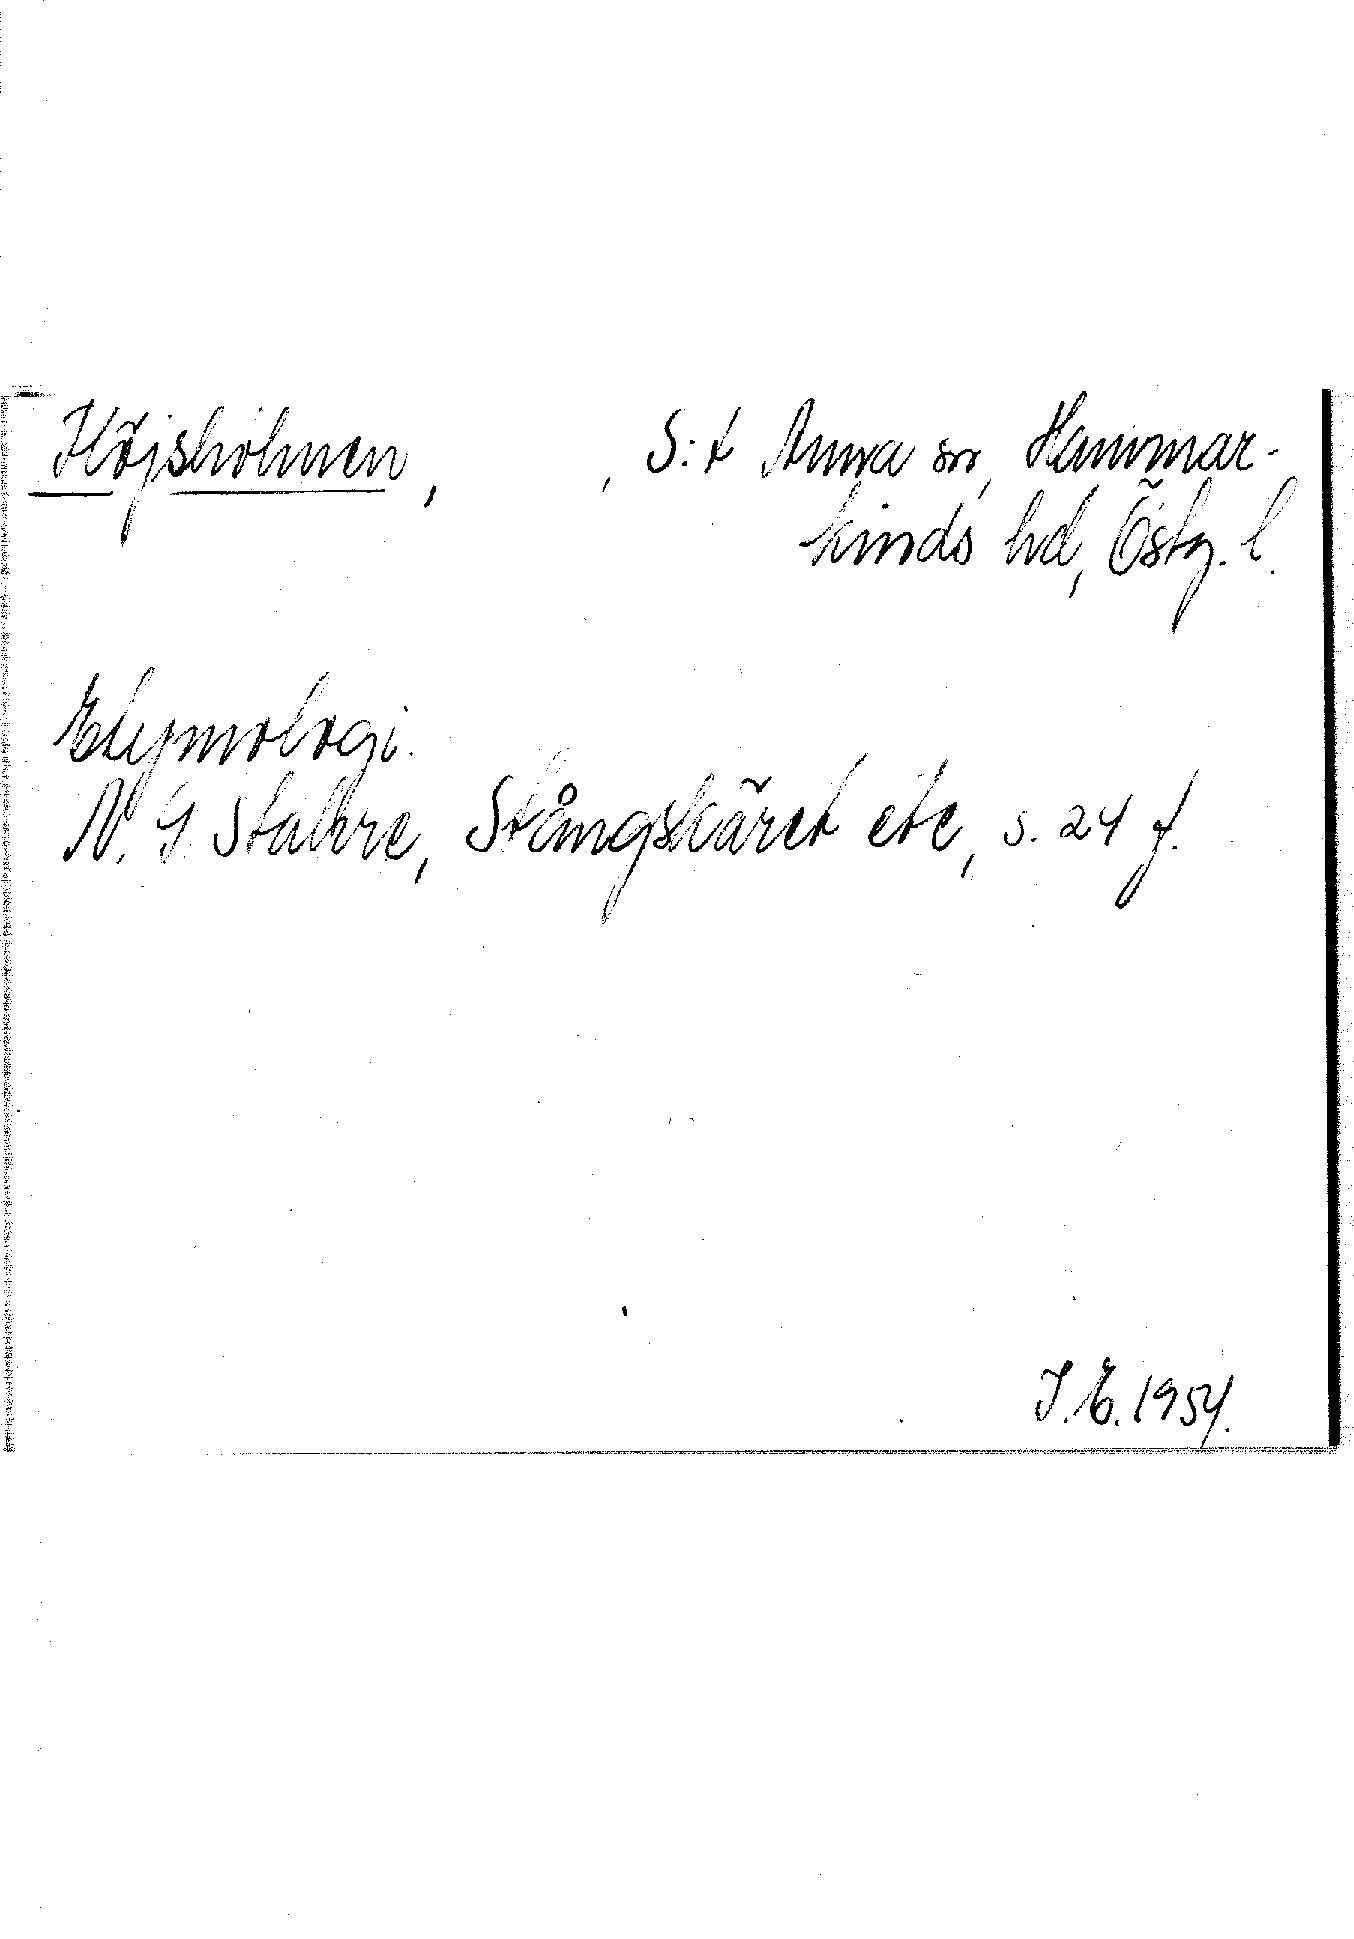 Höjsholmen, , S:t Anna sn, Hammar-
kinds hd, Östg. l.
Etymologi.
N. G. Stahre, Stångskäret etc, s. 24 f.
I. E. 1954.